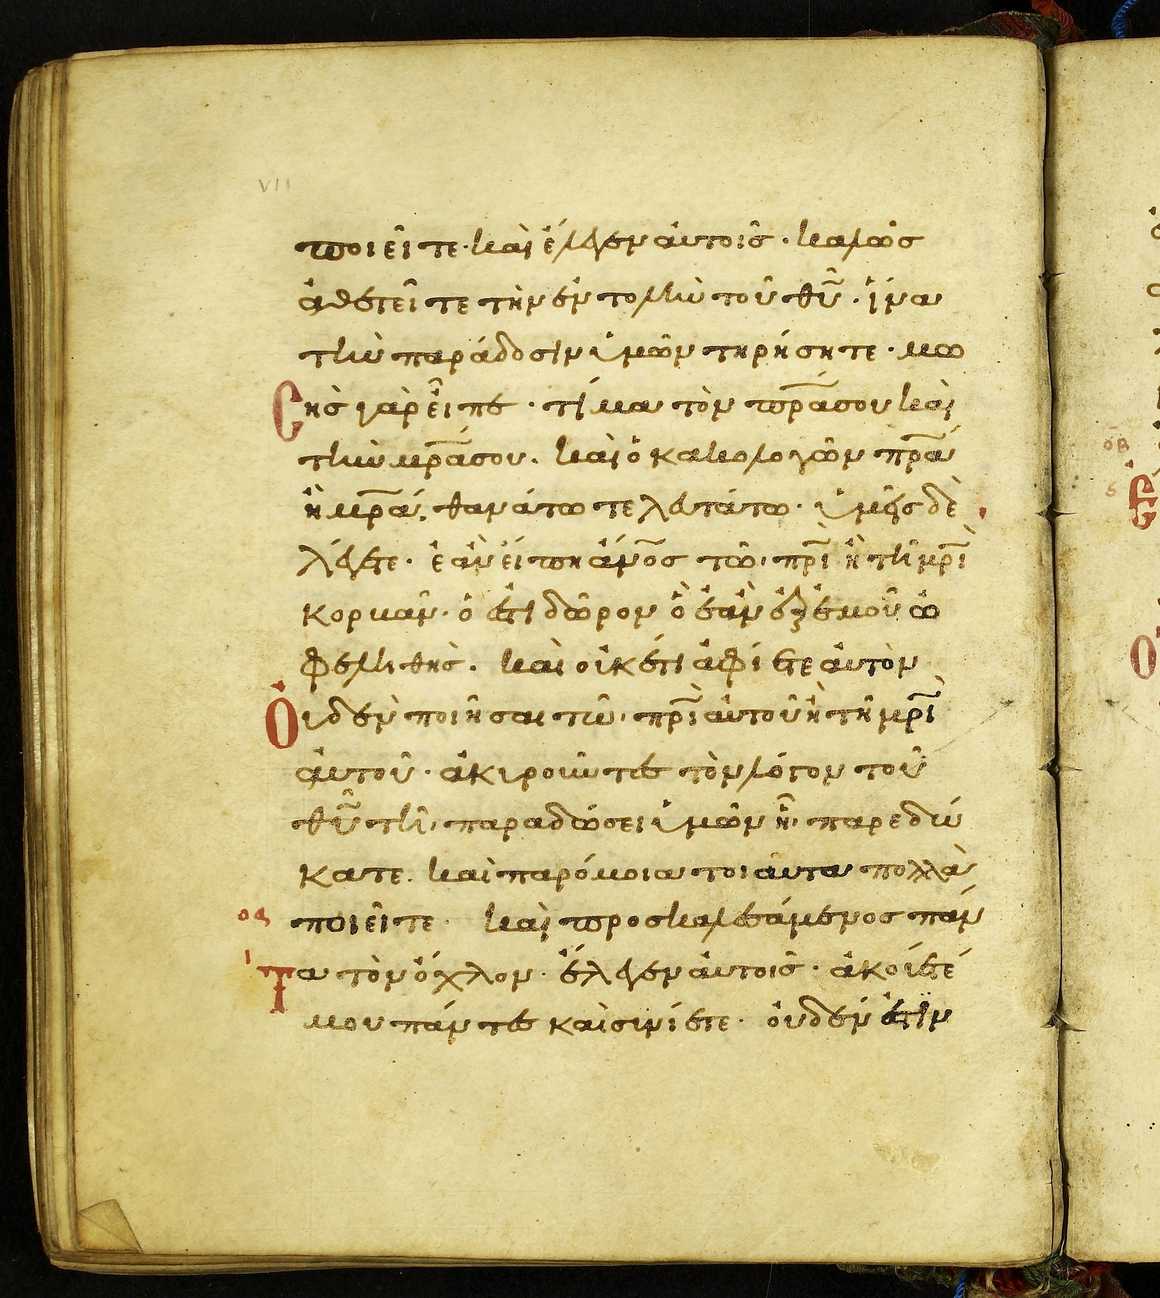 VII
ποιεῖτε· καὶ ἔλεγεν αὐτοῖς· καλῶς
ἀθετεῖτε τὴν ἐντολὴν τοῦ θῦ· ἵνα
τὴν παράδοσιν ὑμῶν τηρήσητε· μω
σῆς γὰρ εἶπε· τίμα τὸν πρᾶσου καὶ
τὴν μρᾶσου. καὶ ὁ κακολογῶν πρᾶ
ἢ μρᾶ, θανάτω τελευτάτω· ὑμεῖς δὲ
λέγετε· ἐὰν εἴπη ἄνος τῶ πρὶ ἢ τῆ μρὶ
κορβαν· ὅ ἐστι δῶρον ὃ ἐὰν ἐξ ἐμοῦ ὠ
φεληθῆς. καὶ οὐκέτι ἀφίετε αὐτὸν
οὐδὲν ποιῆσαι τῶ πρὶ αὐτοῦ ἢ τῆ μρὶ
αὐτοῦ· ἀκυροῦντες τὸν λόγον τοῦ
θῦ τῆ παραδώσει ὑμῶν ἧ παρεδώ
κατε. καὶ παρόμοια τοιαῦτα πολλὰ
οα ποιεῖτε· καὶ προσκαλεσάμενος πάν
ι τα τὸν ὄχλον· ἔλεγεν αὐτοῖς· ἀκούετέ
μου πάντες καὶ συνίετε· οὐδέν ἐστιν
οβ